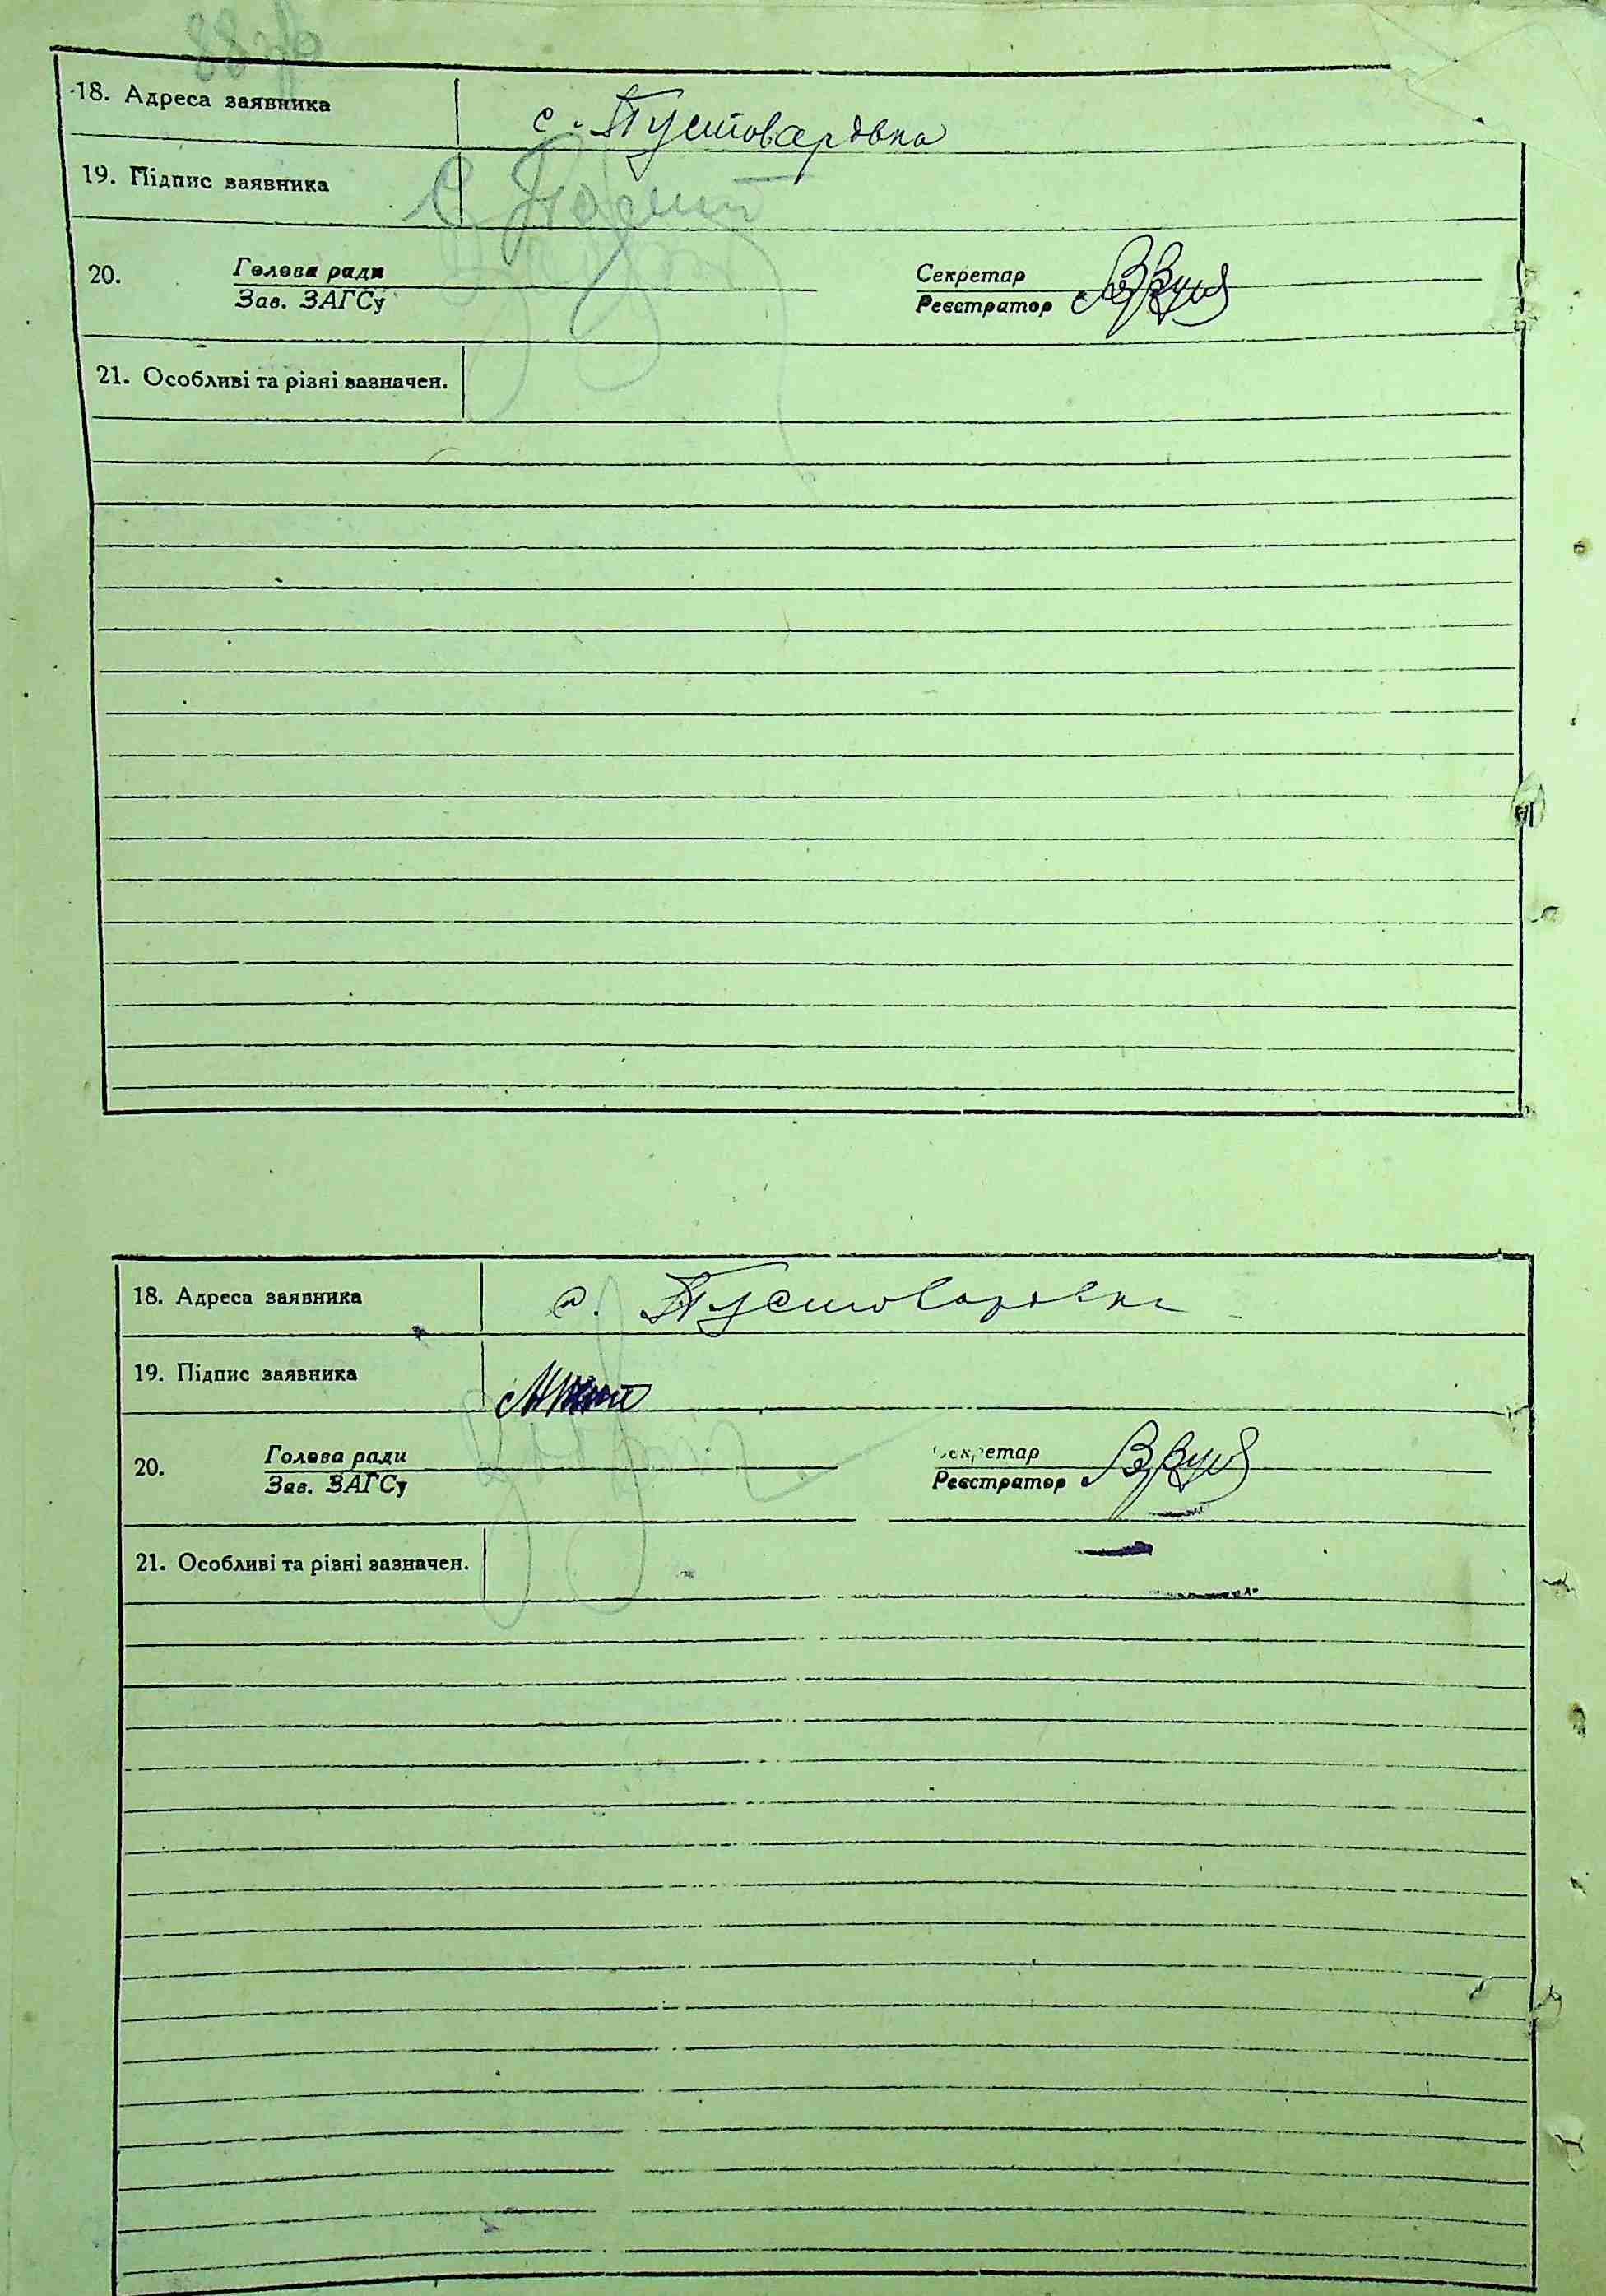 88зв
18. Адреса заявника с. Пустоварівка
19. Підпис заявника
20. Голова ради Секретар
Зав. ЗАГСу Реєстратор
21. Особливі та різні зазначен.
18. Адреса заявника с. Пустоварівка
19. Підпис заявника
20. Голова ради Секретар
Зав. ЗАГСу Реєстратор
21. Особливі та різні зазначен.